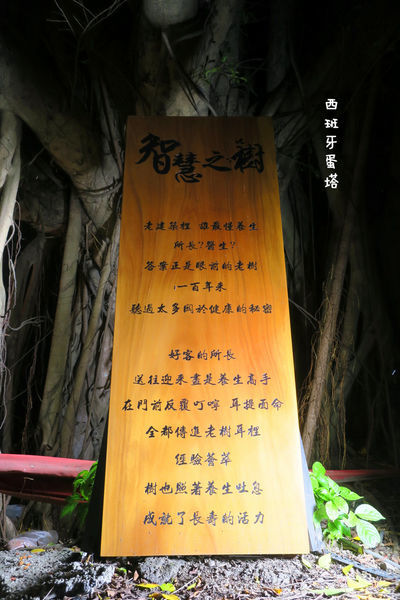 西班牙蛋塔
智慧之樹
老建築裡 誰最懂養生
所長?醫生?
答案正是眼前的老樹
一百年來
聽過太多關於健康的秘密
好客的所長
送往迎來盡是養生高手
在門前反覆叮嚀 耳提面命
全都傳進老樹耳裡
經驗薈萃
樹也照著養生吐息
成就了長壽的活力